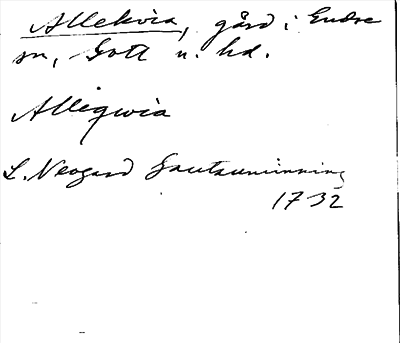 Allekvia, gård i Endre
sn, Gotl n. hd.
Alliqwia
L. Neogard Gautauminning
1732